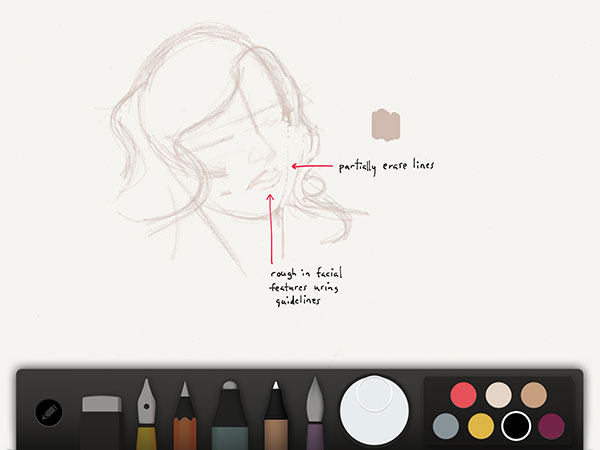 partially erase lines
rough in facial
features using
guidelines